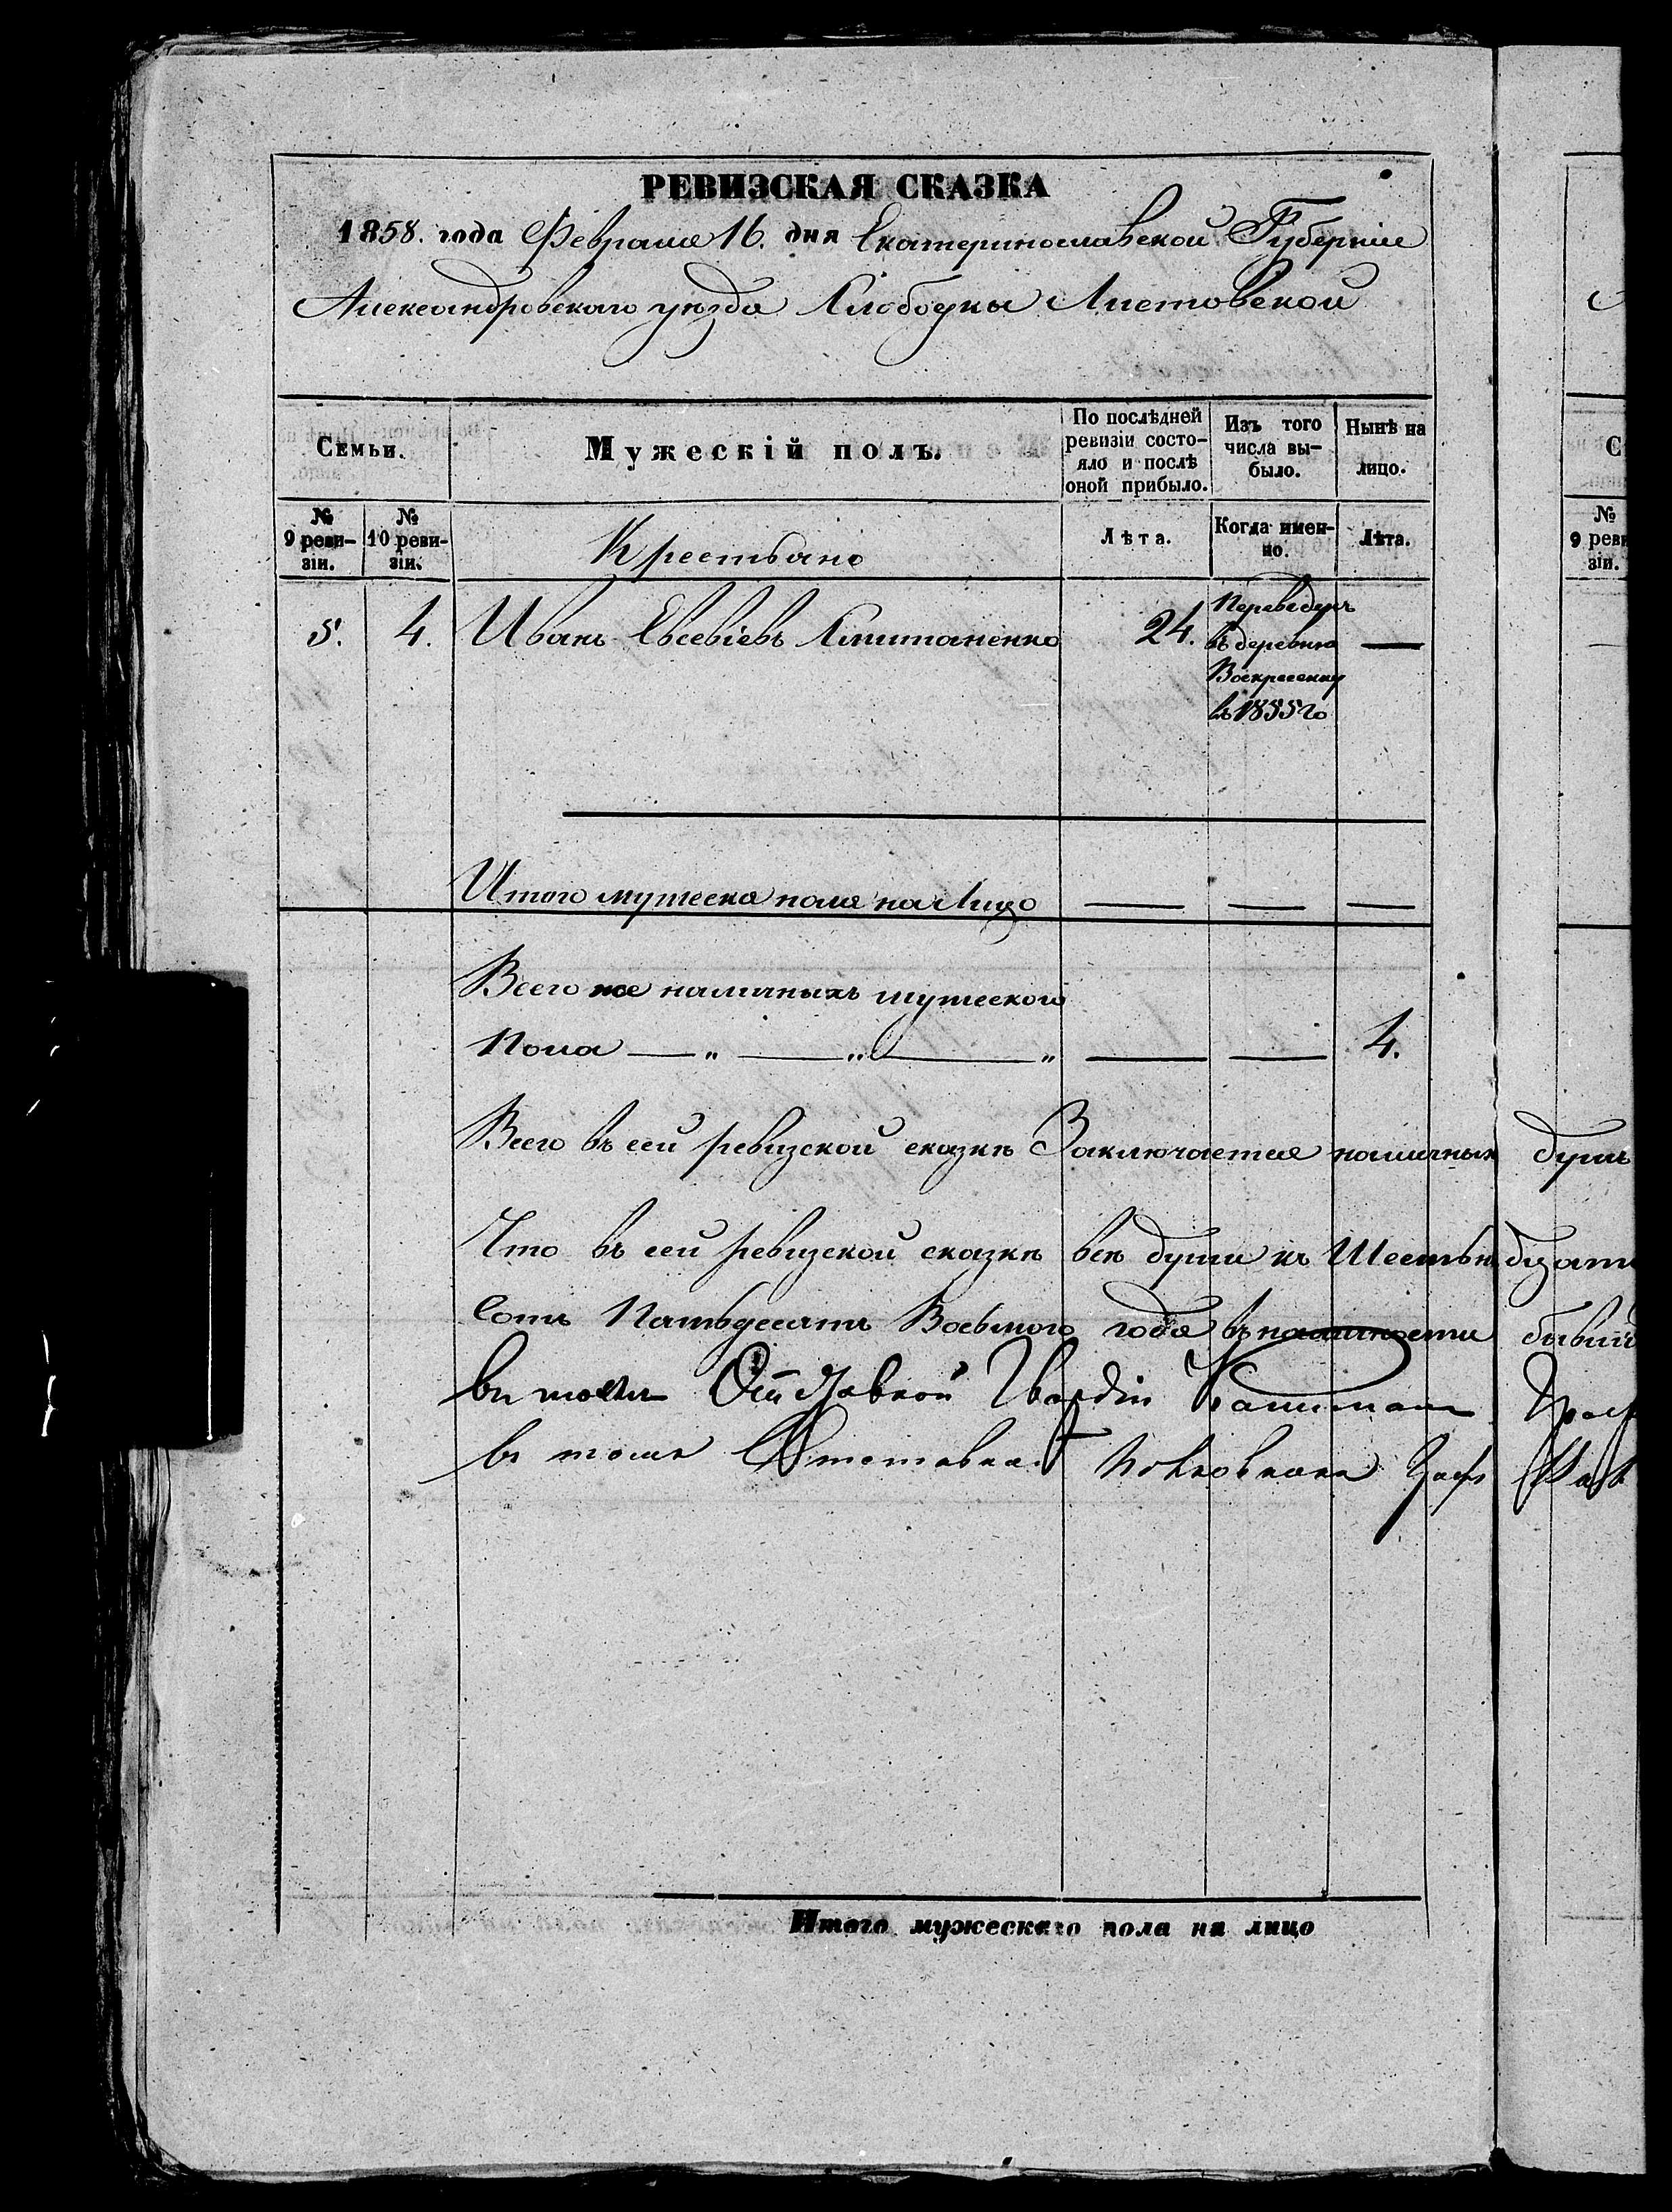 РЕВИЗСКАЯ СКАЗКА
1858. года Февраля 16. дня Екатеринославской Губерніи
Александровскаго уѣзда Слободки Листовской
Семьи.
Мужескій полъ.
По послѣдней ревизіи состо-
яло и послѣ
оной прибыло.
Изъ того
числа вы-
было.
Нынѣ на
лицо.
№
9 реви-
зіи.
№
10 реви-
зіи.
Крестьяне
Лѣта.
Когда имен-
но.
Лѣта.
5. 4. Иванъ Евсевіевъ 24. —
Переведенъ
въ деревню
Воскресенку
въ 1855 го
Итого мужеска пола на Лицо — — —
Всего же наличныхъ мужескаго
Пола — „ — „ — „ — — 4.
Всего въ сей ревизской сказкѣ Заключается наличныхъ душъ
Что въ сей ревизской сказкѣ всѣ души къ Шестьнадцати
Сотъ Пятьдесятъ Восьмого года въ наличности бывші
въ томъ Отставной Гвардіи Капитанъ Граф
въ томъ Полковникъ Граф
Итого мужескаго пола на лицо
С
№
9 реви
зіи.